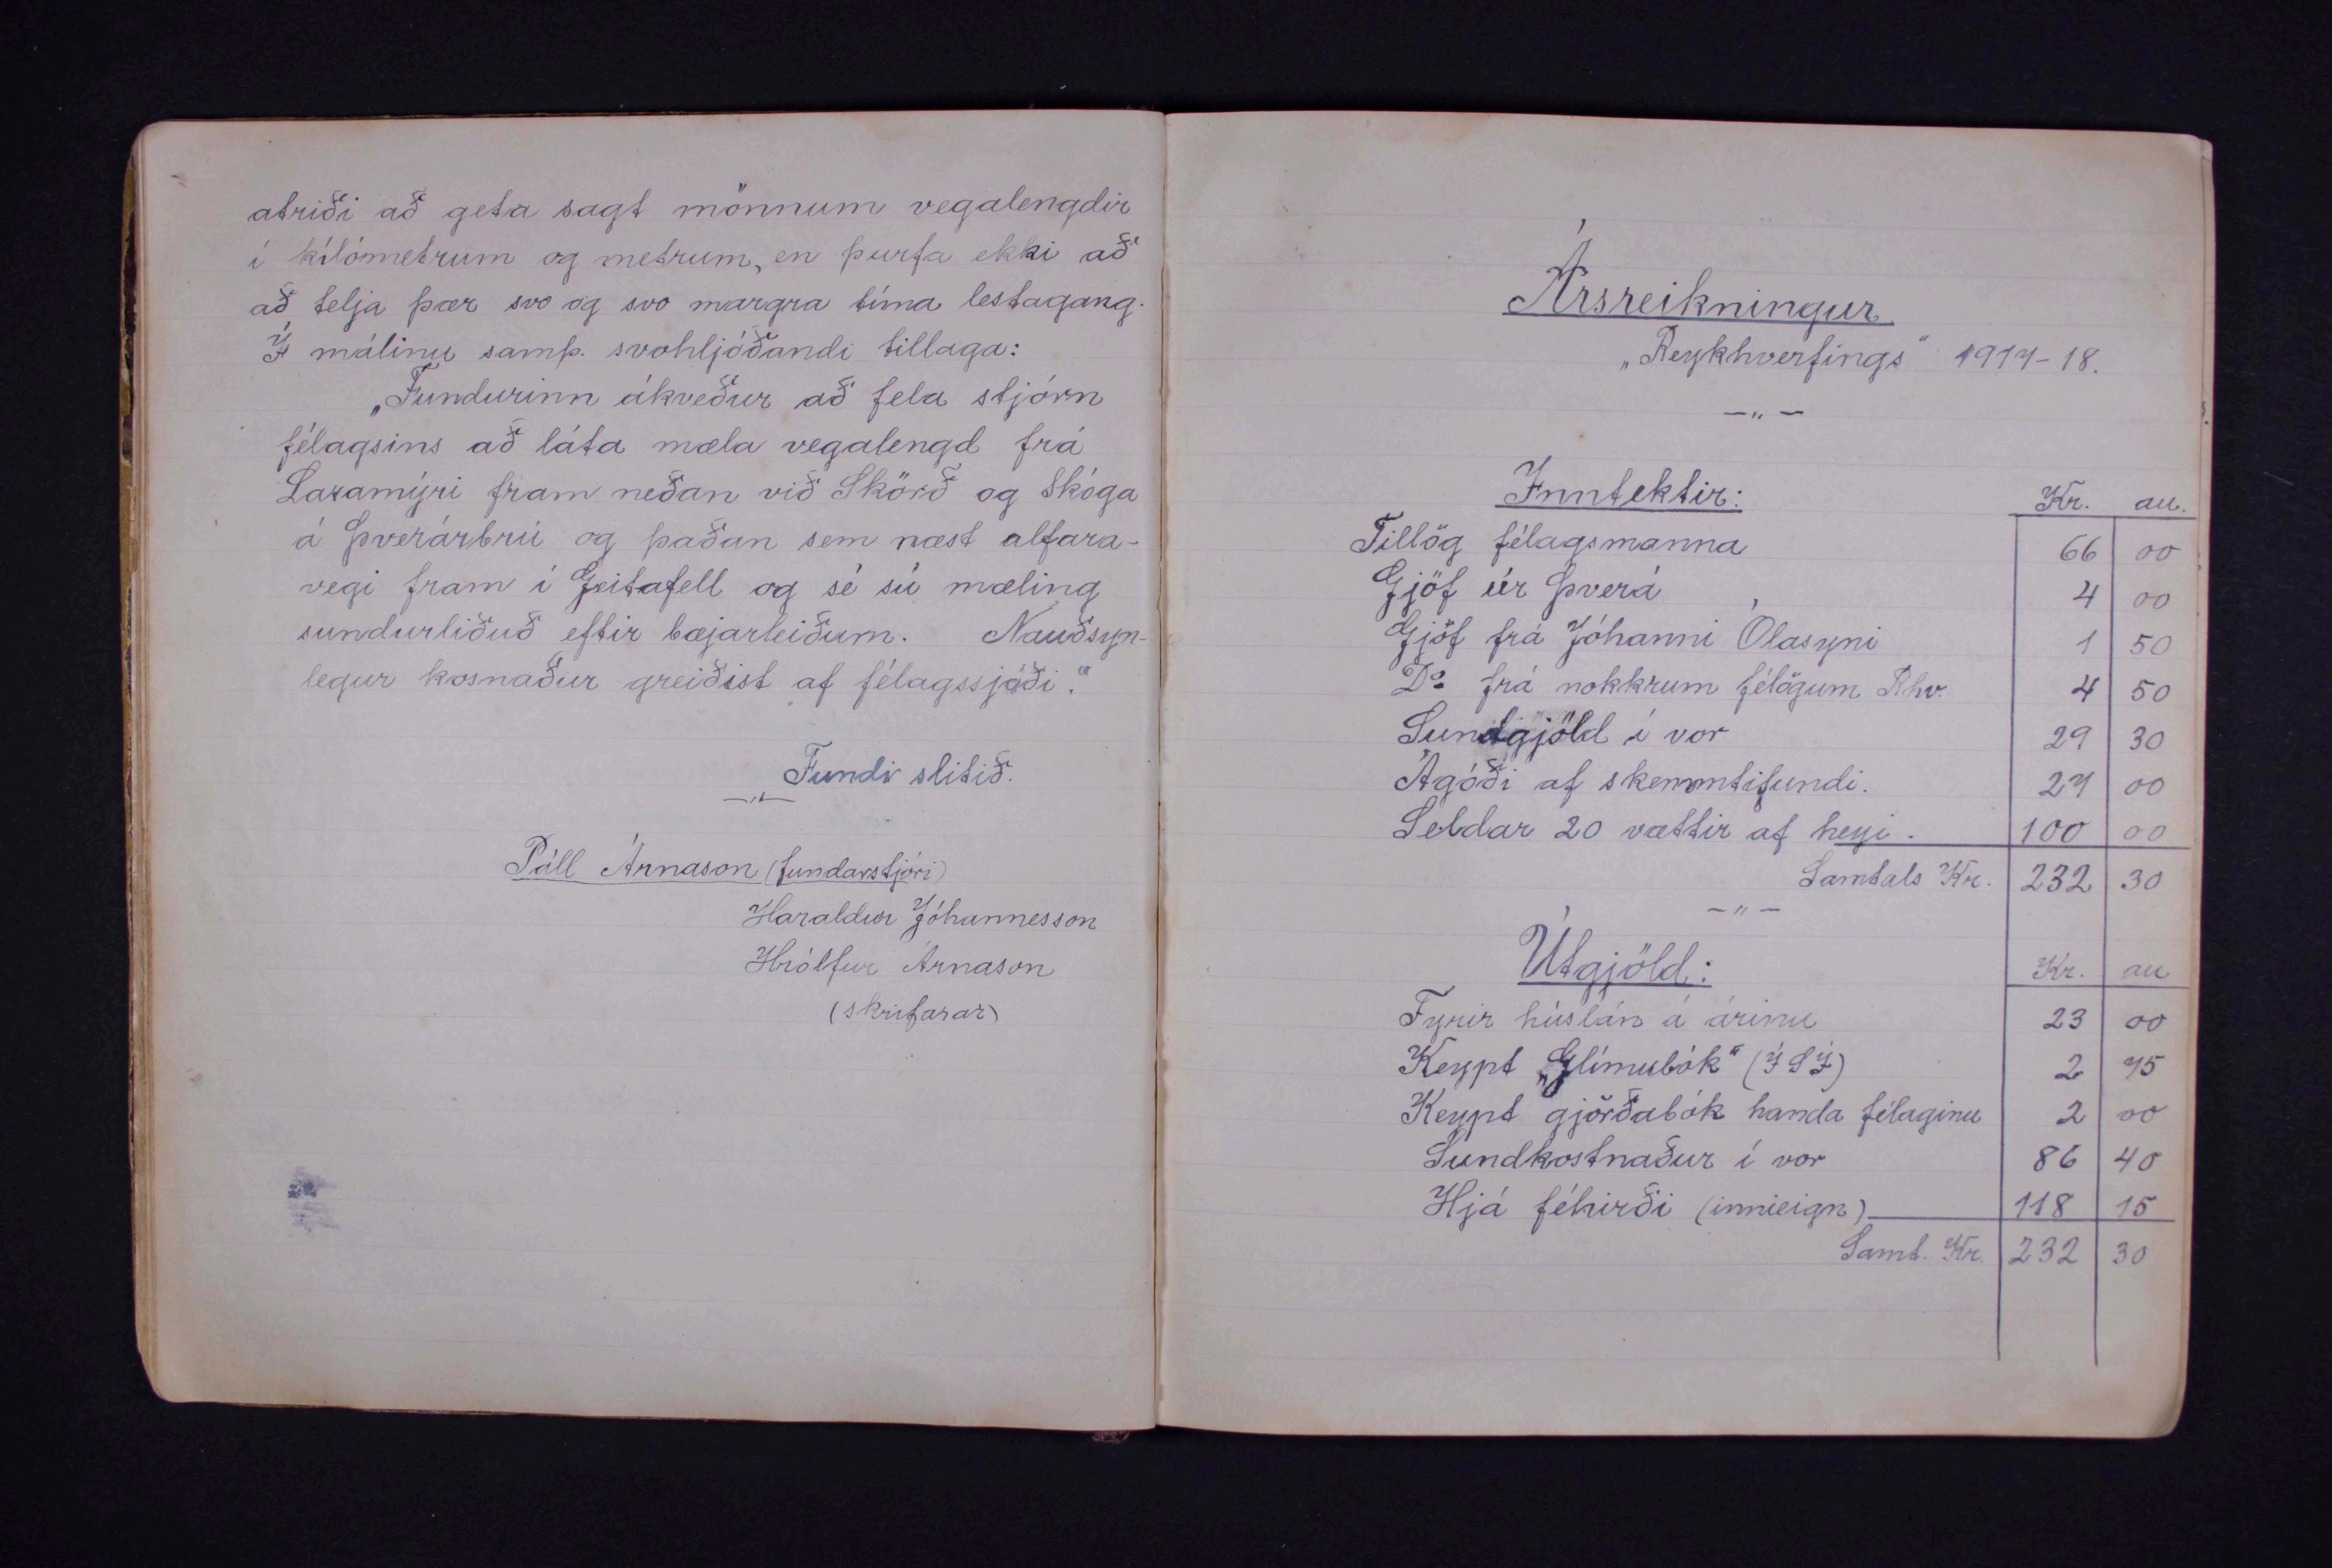 atriði að geta sagt mönnum vegalengdir
í kílómetrum og metrum, en þurfa ekki að
að telja þær svo og svo margra tíma lestagang.
Í málinu samþ. svohljóðandi tillaga:
„Fundurinn ákveður að fela stjórn
félagsins að láta mæla vegalengd frá
Laxamýri fram neðan við Skörð og Skóga
á Þverárbrú og þaðan sem næst alfara-
vegi fram í Geitafell og sé sú mæling
sundurliðuð eftir bæjarleiðum. Nauðsyn-
legur kosnaður greiðist af félagssjóði."
Fundi slitið.
—„—
Páll Árnason (fundarstjóri)
Haraldur Jóhannesson
Hrólfur Árnason
(skrifarar)
Ársreikningur
„Reykhverfings" 1917-18.
—„—
Inntektir: Kr. au.
Tillög félagsmanna 66 00
Gjöf úr Þverá 4 00
Gjöf frá Jóhanni Ólasyni 1 50
Do frá nokkrum félögum Rhv. 4 50
Sundgjöld í vor 29 30
Ágóði af skemmtifundi. 27 00
Seldar 20 vættir af heyi. 100 00
Samtals Kr. 232 30
—„—
Útgjöld: Kr. au
Fyrir húslán á árinu 23 00
Keypt „Glímubók" (ÍSÍ) 2 75
Keypt gjörðabók handa félaginu 2 00
Sundkostnaður í vor 86 40
Hjá féhirði (innieign) 118 15
Samt. Kr. 232 30